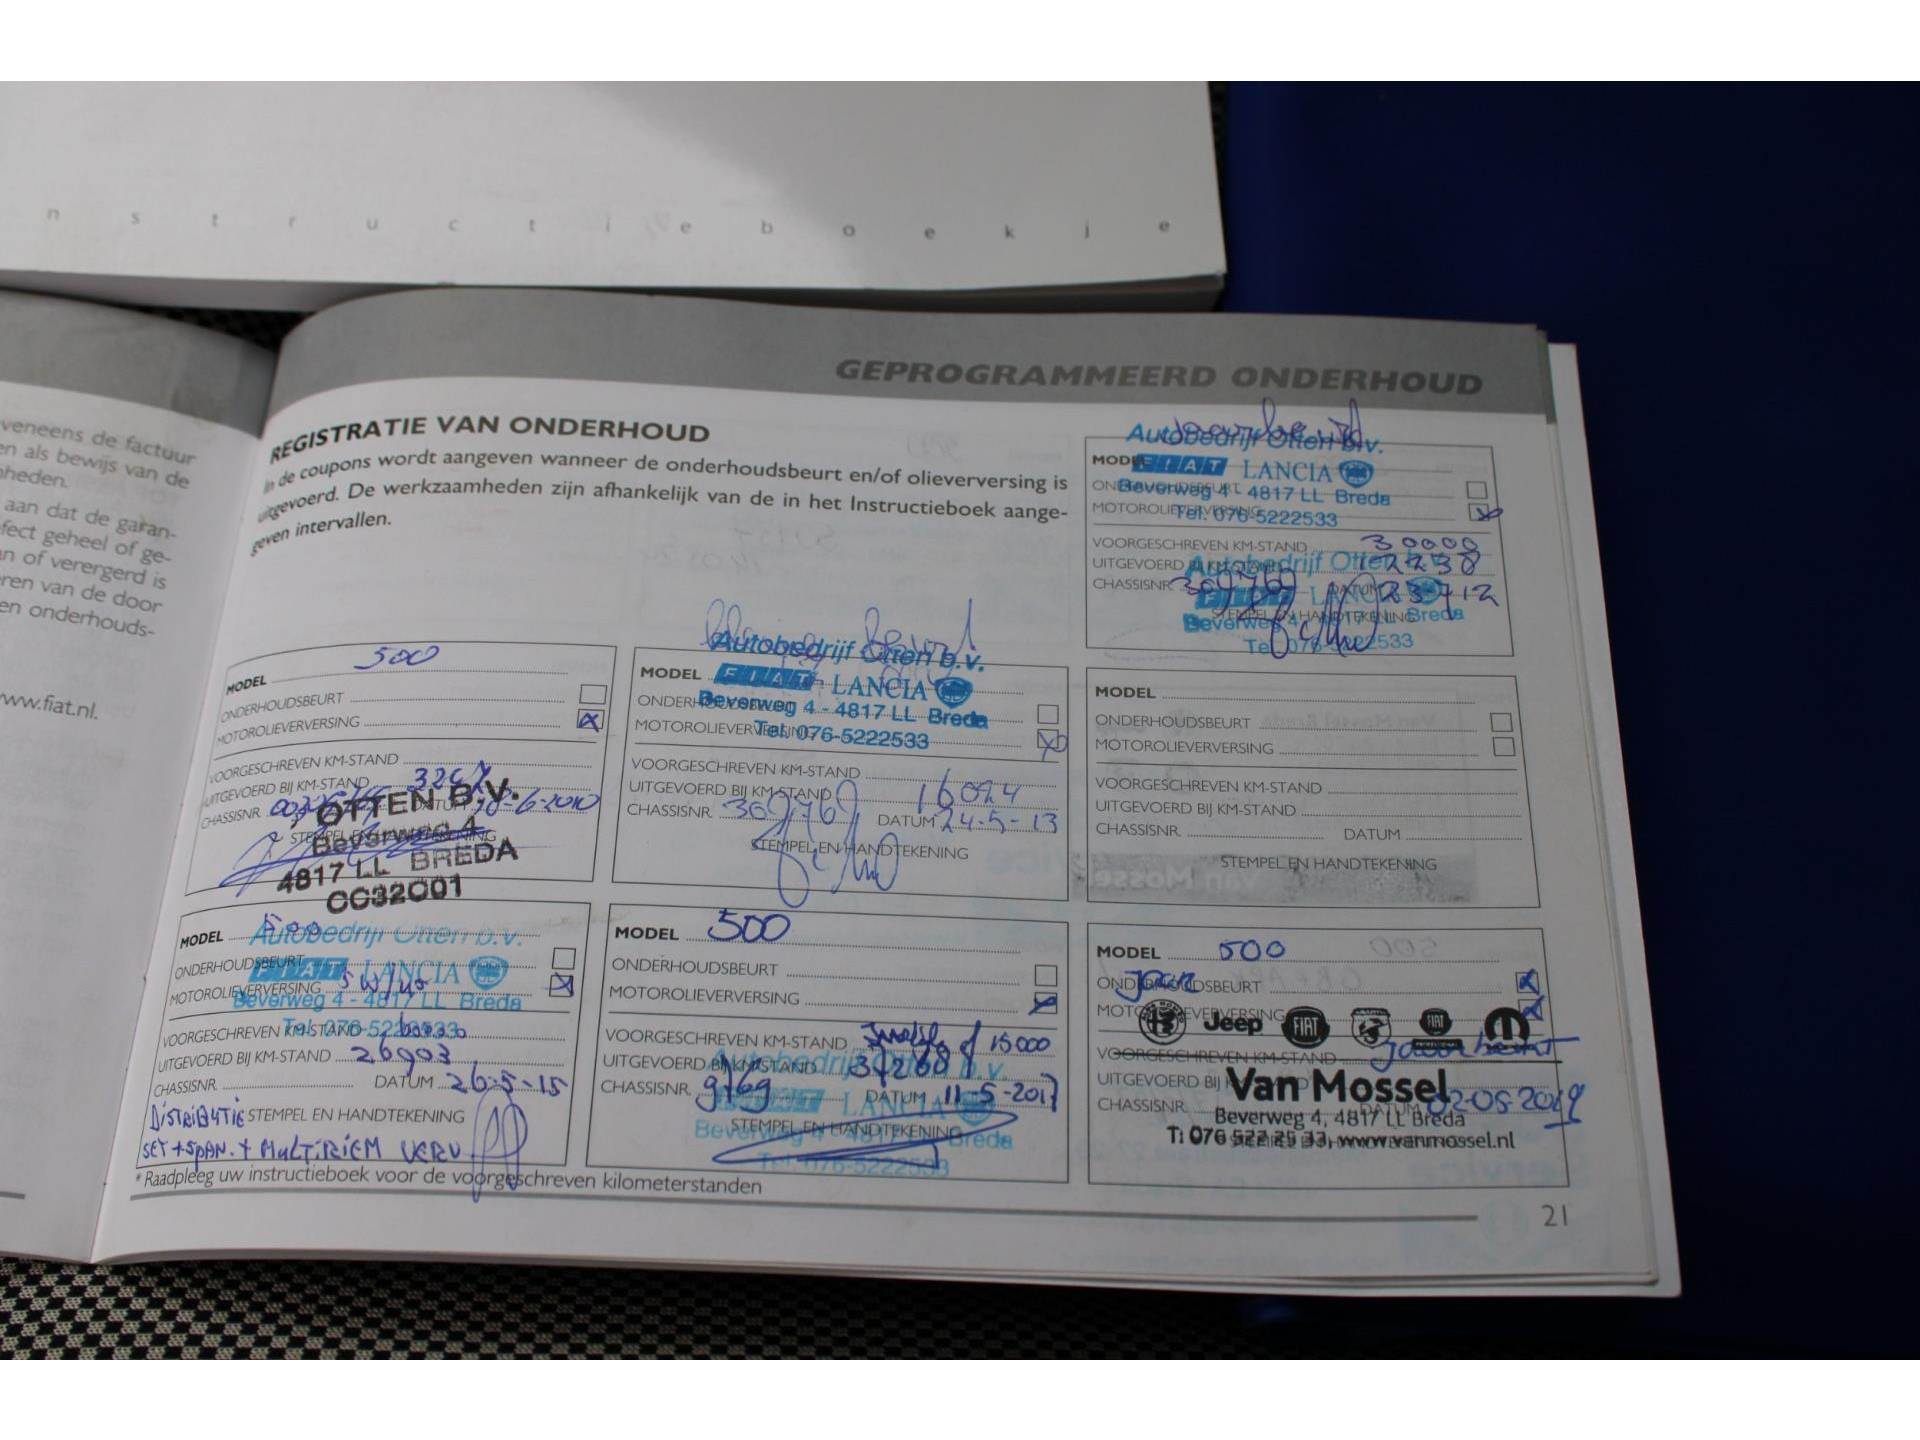 n s t r u c t i e b o e k j e
veneens de factuur
en als bewijs van de
heden.
aan dat de garan-
fect geheel of ge-
n of verergerd is
ren van de door
en onderhouds-
ww.fiat.nl.
GEPROGRAMMEERD ONDERHOUD
REGISTRATIE VAN ONDERHOUD
In de coupons wordt aangeven wanneer de onderhoudsbeurt en/of olieverversing is
uitgevoerd. De werkzaamheden zijn afhankelijk van de in het Instructieboek aange-
geven intervallen.
Autobedrijf Otten b.v.
MODEL
FIAT LANCIA
ONDERHOUDSBEURT
Beverweg 4 - 4817 LL Breda
MOTOROLIEVERVERSING
Tel. 076-5222533
VOORGESCHREVEN KM-STAND 30000
UITGEVOERD BIJ KM-STAND 12238
Autobedrijf Otten b.v.
CHASSISNR. 309769 DATUM 23-7-12
FIAT LANCIA
STEMPEL EN HANDTEKENING
Beverweg 4 - 4817 LL Breda
Tel. 076-5222533
MODEL 500
ONDERHOUDSBEURT
MOTOROLIEVERVERSING
VOORGESCHREVEN KM-STAND
UITGEVOERD BIJ KM-STAND
CHASSISNR. DATUM -6-2010
OTTEN B.V.
STEMPEL EN HANDTEKENING
Beverweg 4
4817 LL BREDA
CC32001
Autobedrijf Otten b.v.
MODEL
FIAT LANCIA
ONDERHOUDSBEURT
Beverweg 4 - 4817 LL Breda
MOTOROLIEVERVERSING
Tel. 076-5222533
VOORGESCHREVEN KM-STAND
UITGEVOERD BIJ KM-STAND 16024
CHASSISNR. 309769 DATUM 24-5-13
STEMPEL EN HANDTEKENING
MODEL
ONDERHOUDSBEURT
MOTOROLIEVERVERSING
VOORGESCHREVEN KM-STAND
UITGEVOERD BIJ KM-STAND
CHASSISNR. DATUM
STEMPEL EN HANDTEKENING
MODEL 500
Autobedrijf Otten b.v.
ONDERHOUDSBEURT
FIAT LANCIA
MOTOROLIEVERVERSING
Beverweg 4 - 4817 LL Breda
VOORGESCHREVEN KM-STAND
Tel. 076-5222533
UITGEVOERD BIJ KM-STAND 26903
CHASSISNR. DATUM 26-5-15
DISTRIBUTIE STEMPEL EN HANDTEKENING
SET + SPAN. + MULTIRIEM VERV
MODEL 500
ONDERHOUDSBEURT
MOTOROLIEVERVERSING
VOORGESCHREVEN KM-STAND Jaarlijks of 15000
UITGEVOERD BIJ KM-STAND 37268
Autobedrijf Otten b.v.
CHASSISNR. 9769 DATUM 11-5-2017
FIAT LANCIA
STEMPEL EN HANDTEKENING
Beverweg 4 - 4817 LL Breda
Tel. 076-5222533
MODEL 500
ONDERHOUDSBEURT
MOTOROLIEVERVERSING
Jeep FIAT
VOORGESCHREVEN KM-STAND
UITGEVOERD BIJ KM-STAND
Van Mossel
CHASSISNR. DATUM 02-05-2019
Beverweg 4, 4817 LL Breda
STEMPEL EN HANDTEKENING
T: 076 522 25 33, www.vanmossel.nl
* Raadpleeg uw instructieboek voor de voorgeschreven kilometerstanden
21